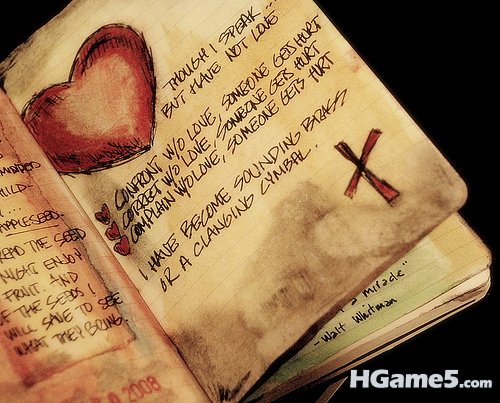 THOUGH I SPEAK...
BUT HAVE NOT LOVE
CONFRONT W/O LOVE, SOMEONE GETS HURT
CORRECT W/O LOVE, SOMEONE GETS HURT
COMPLAIN W/O LOVE, SOMEONE GETS HURT
I HAVE BECOME SOUNDING BRASS
OR A CLANGING CYMBAL.
X
APPLESEED
READ THE SEED
NIGHT ENJOY
FRUIT AND
THE SEEDS I
WILL SAVE TO SEE
WHAT THEY BRING.
2008
a miracle"
-Walt Whitman
HGame5.com